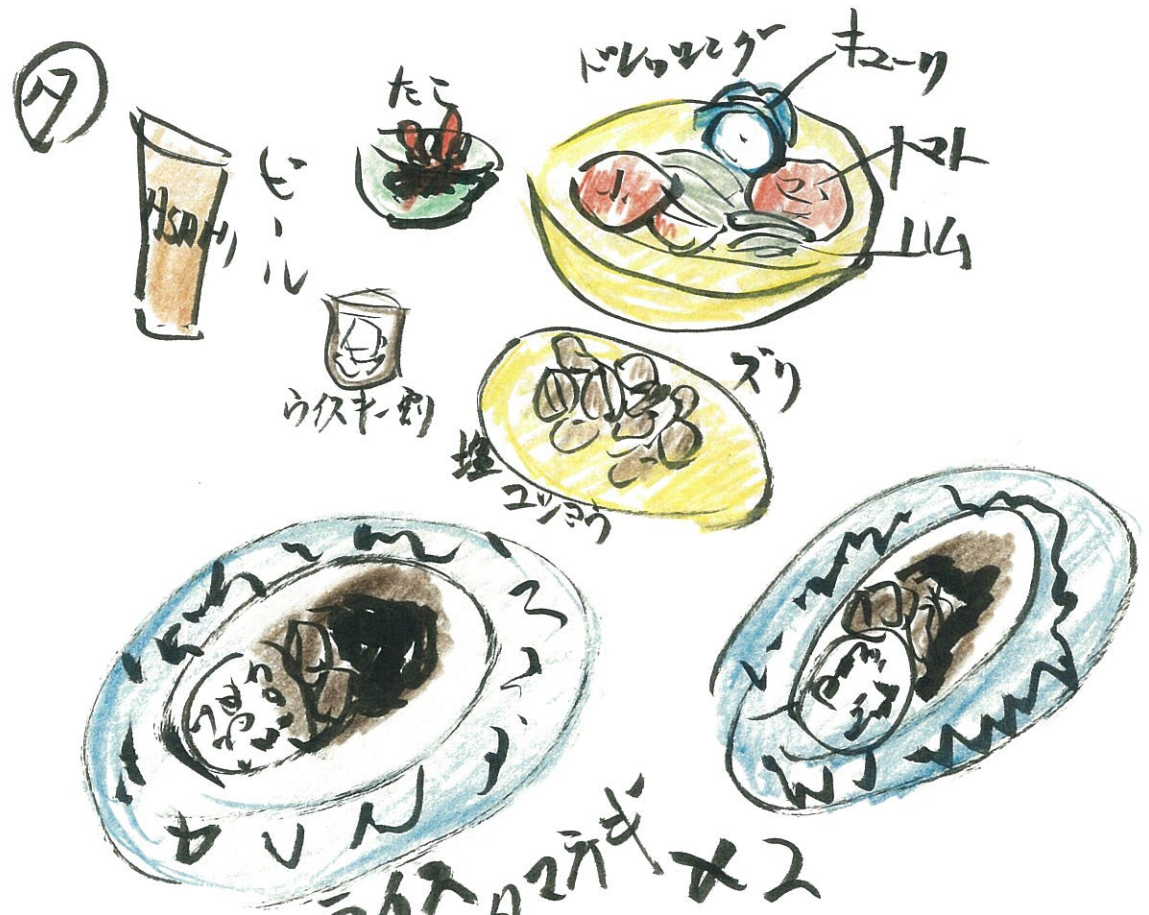 夕
ASAHI
ビール
たこ
ドレッシング
キューリ
トマト
ハム
ウイスキー割
ズリ
塩
コショウ
×2